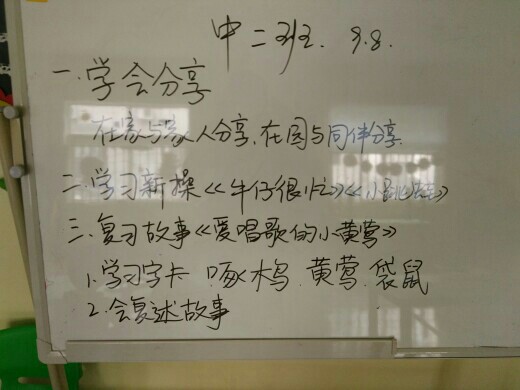 中二班 9.8.
一.学会分享
在家与家人分享.在园与同伴分享.
二.学习新操《牛仔很忙》《小跳蛙》
三.复习故事《爱唱歌的小黄莺》
1.学习字卡 啄木鸟.黄莺.袋鼠
2.会复述故事